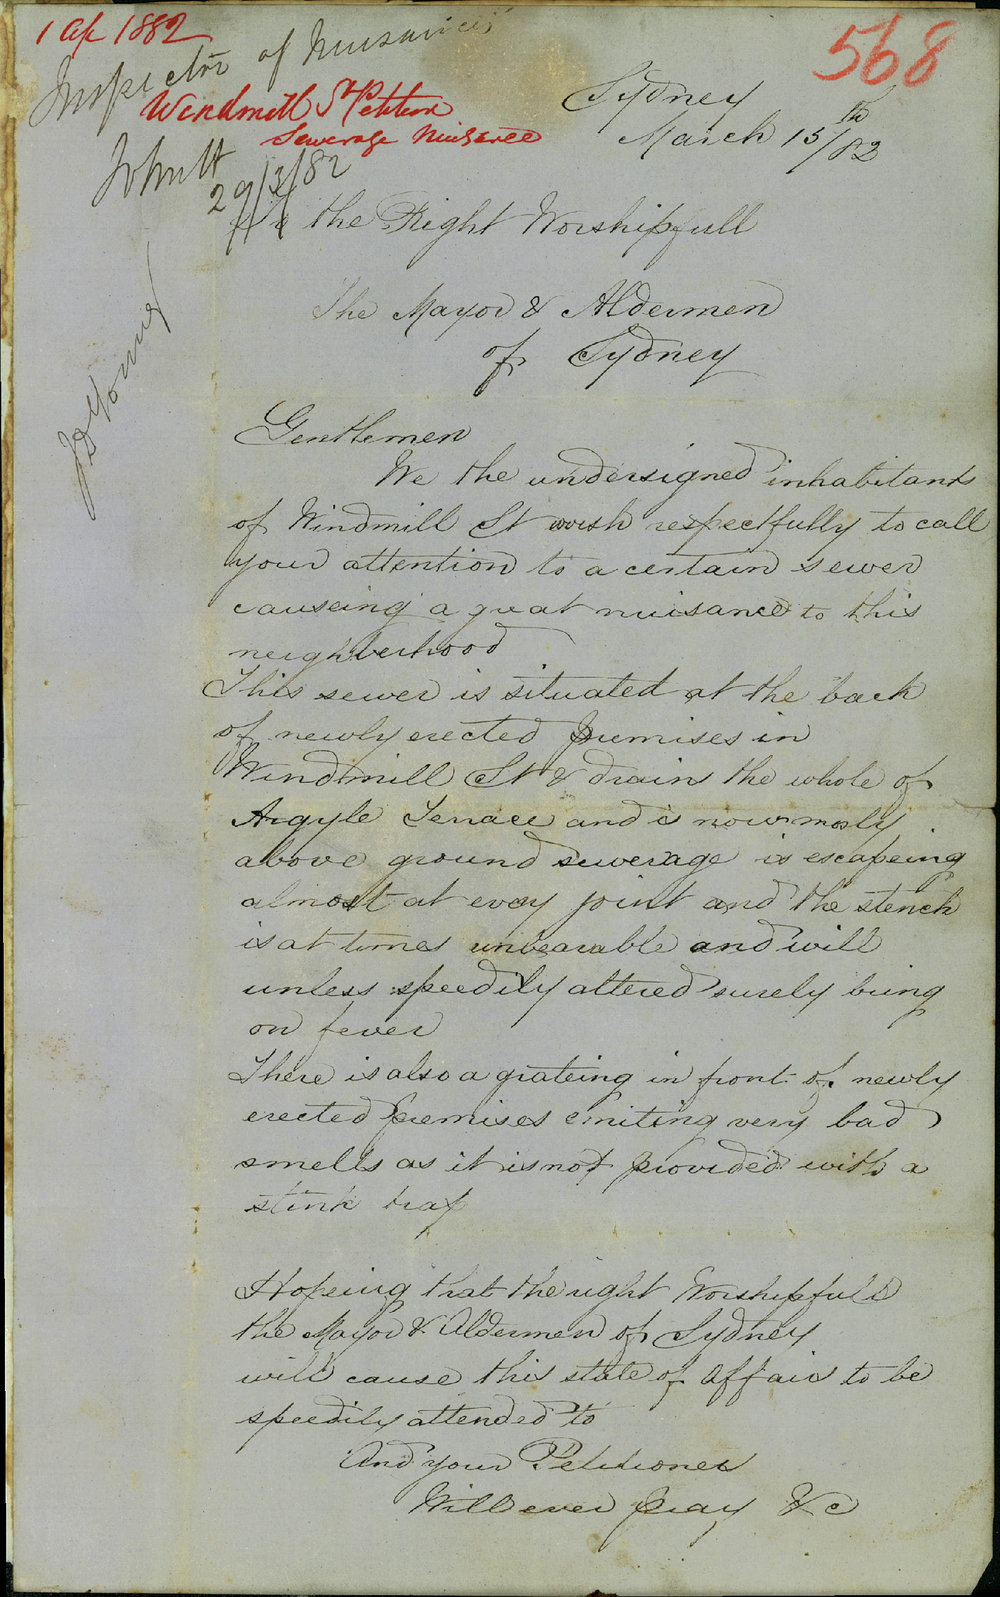 1 Ap 1882
568
Inspector of Nuisances
Windmill St Petition
Sewerage Nuisance
29/3/82
Sydney
March 15th/82
To the Right Worshipfull
The Mayor & Aldermen
of Sydney
Gentlemen
We the undersigned inhabitants
of Windmill St wish respectfully to call
your attention to a certain sewer
causeing a great nuisance to this
neighberhood
This sewer is situated at the back
of newly erected premises in
Windmill St & drains the whole of
Argyle Terrace and is now mosly
above ground sewerage is escapeing
almost at every joint and the stench
is at times unbearable and will
unless speedily altered surely bring
on fever
There is also a grateing in front of newly
erected premises emiting very bad
smells as it is not provided with a
stink trap
Hopeing that the right Worshipfull
the Mayor & Aldermen of Sydney
will cause this state of affairs to be
speedily attended to
And your Petitioners
Will ever pray &c